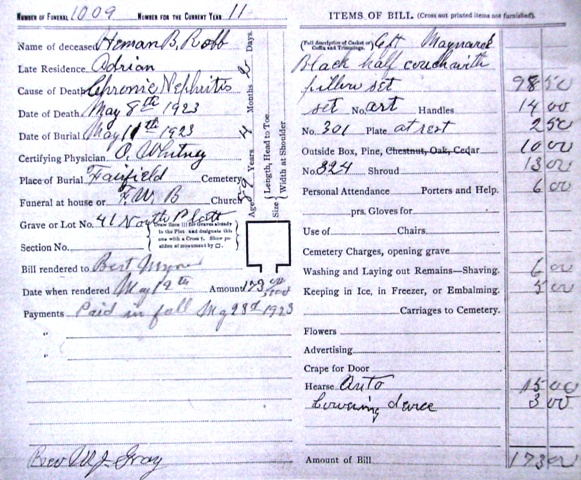 NUMBER OF FUNERAL 1009 NUMBER FOR THE CURRENT YEAR 11
Name of deceased Heman B. Robb
Late Residence Adrian
Cause of Death Chronic Nephritis
Date of Death May 8th 1923
Date of Burial May 11th 1923
Certifying Physician O. Whitney
Place of Burial Fairfield Cemetery
Funeral at house or F.W.B Church
Grave or Lot No. 41 North Plott
Section No.
Draw lines for graves already in the Plot and designate this one with a Cross †. Show position of monument by □.
Age 59 Years 4 Months 2 Days.
Size Length, Head to Toe
Width at Shoulder
Bill rendered to Bert
Date when rendered May 12th Amount 173 00
Payments Paid in full 23d 1923
"
"
Rev W.J. Gray
ITEMS OF BILL (Cross out printed items not furnished).
(Full description of Casket or Coffin and Trimmings.)
Black half couch with
pillow set 98 50
set No. art Handles 14 00
No. 301 Plate at rest 2 50
Outside Box, Pine, Chestnut, Oak, Cedar 10 00
No. 324 Shroud 13 00
Personal Attendance Porters and Help. 6 00
prs. Gloves for
Use of Chairs.
Cemetery Charges, opening grave
Washing and Laying out Remains—Shaving. 6 00
Keeping in Ice, in Freezer, or Embalming. 5 00
Carriages to Cemetery.
Flowers
Advertising
Crape for Door
Hearse Auto 15 00
Lowering device 3 00
Amount of Bill 173 00